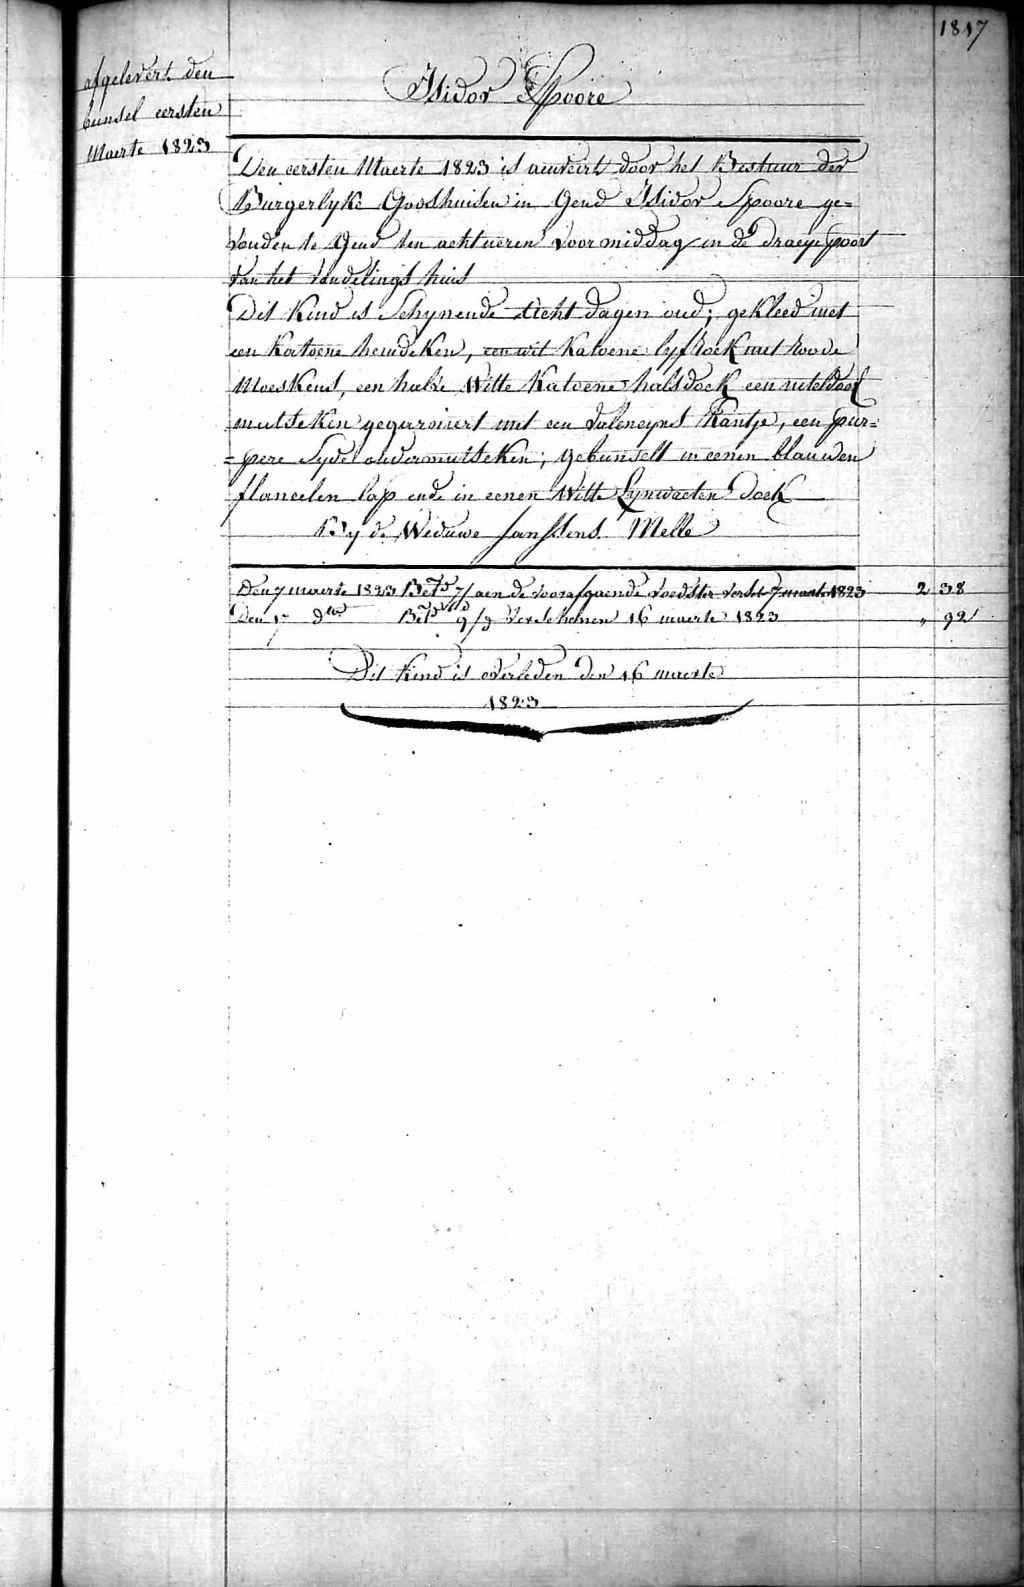 1817
afgelevert den
bunsel eersten
Maerte 1823
Isidor Spoore
Den eersten Maerte 1823 is aenveirt door het Bestuur der
Burgerlyke Godshuisen in Gend Isidor Spoore ge=
vonden te Gend ten acht ueren voormiddag in de draeye poort
van het vindelings huis
Dit kind is schynende acht dagen oud; gekleed met
een katoene hemdeken, een wit katoene lyfrock met roode
moeskens, een halve witte katoene halsdoek een neteldoek
mutseken gegarniert met een valencyns kantje, een pur=
=pere syde ondermutseken; gebunselt in eenen blauwen
flaneelen lap ende in eenen witte Lynwaeten doek
By de Weduwe Janssens Melle
Den 7 maerte 1823 Bet^d 7/ aen de voorafgaende voedster versch. 7 maerte 1823 2 38
Den 17 d^to Bet^d 9/9 verschenen 16 maerte 1823 " 92
Dit kind is overleden den 16 maerte
1823